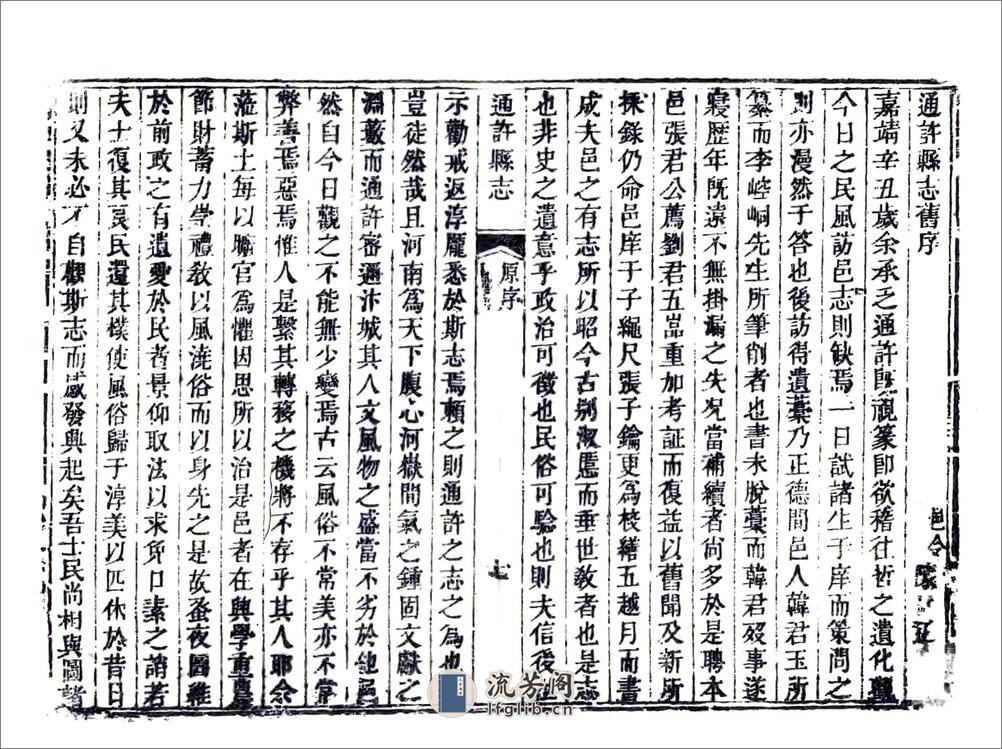 通許縣志舊序
邑令
嘉靖辛丑歲余承乏通許旣視篆即欲稽往哲之遺化觀
今日之民風訪邑志則缺焉一日試諸生于庠而策問之
則亦漫然于答也後訪得遺藁乃正德間邑人韓君玉所
纂而李崆峒先生所筆削者也書未脫藁而韓君歿事遂
寢歷年既遠不無掛漏之失况當補續者尚多於是聘本
邑張君公薦劉君五嵓重加考証而復益以舊聞及新所
採錄仍命邑庠于子繩尺張子鑰更為校繕五越月而書
成夫邑之有志所以昭今古別淑慝而垂世敎者也是志
也非史之遺意乎政治可徵也民俗可驗也則夫信後
通許縣志
原序
七
示勸戒返淳龐悉於斯志焉賴之則通許之志之為也
豈徒然哉且河南為天下腹心河嶽間氣之鍾固文獻之
淵藪而通許密邇汴城其人文風物之盛當不劣於他邑
然自今日觀之不能無少變焉古云風俗不常美亦不常
弊善焉惡焉惟人是繫其轉移之機將不存乎其人耶余
蒞斯土每以曠官為懼因思所以治是邑者在興學重農
節財蓄力學禮敎以風澆俗而以身先之是故蚤夜圖維
於前政之有遺愛於民者景仰取法以求免口素之誚若
夫士復其良民還其樸使風俗歸于淳美以匹休於昔日
則又未必不自觀斯志而感發興起矣吾士民尚相與圖諸
流芳阁
lfglib.cn